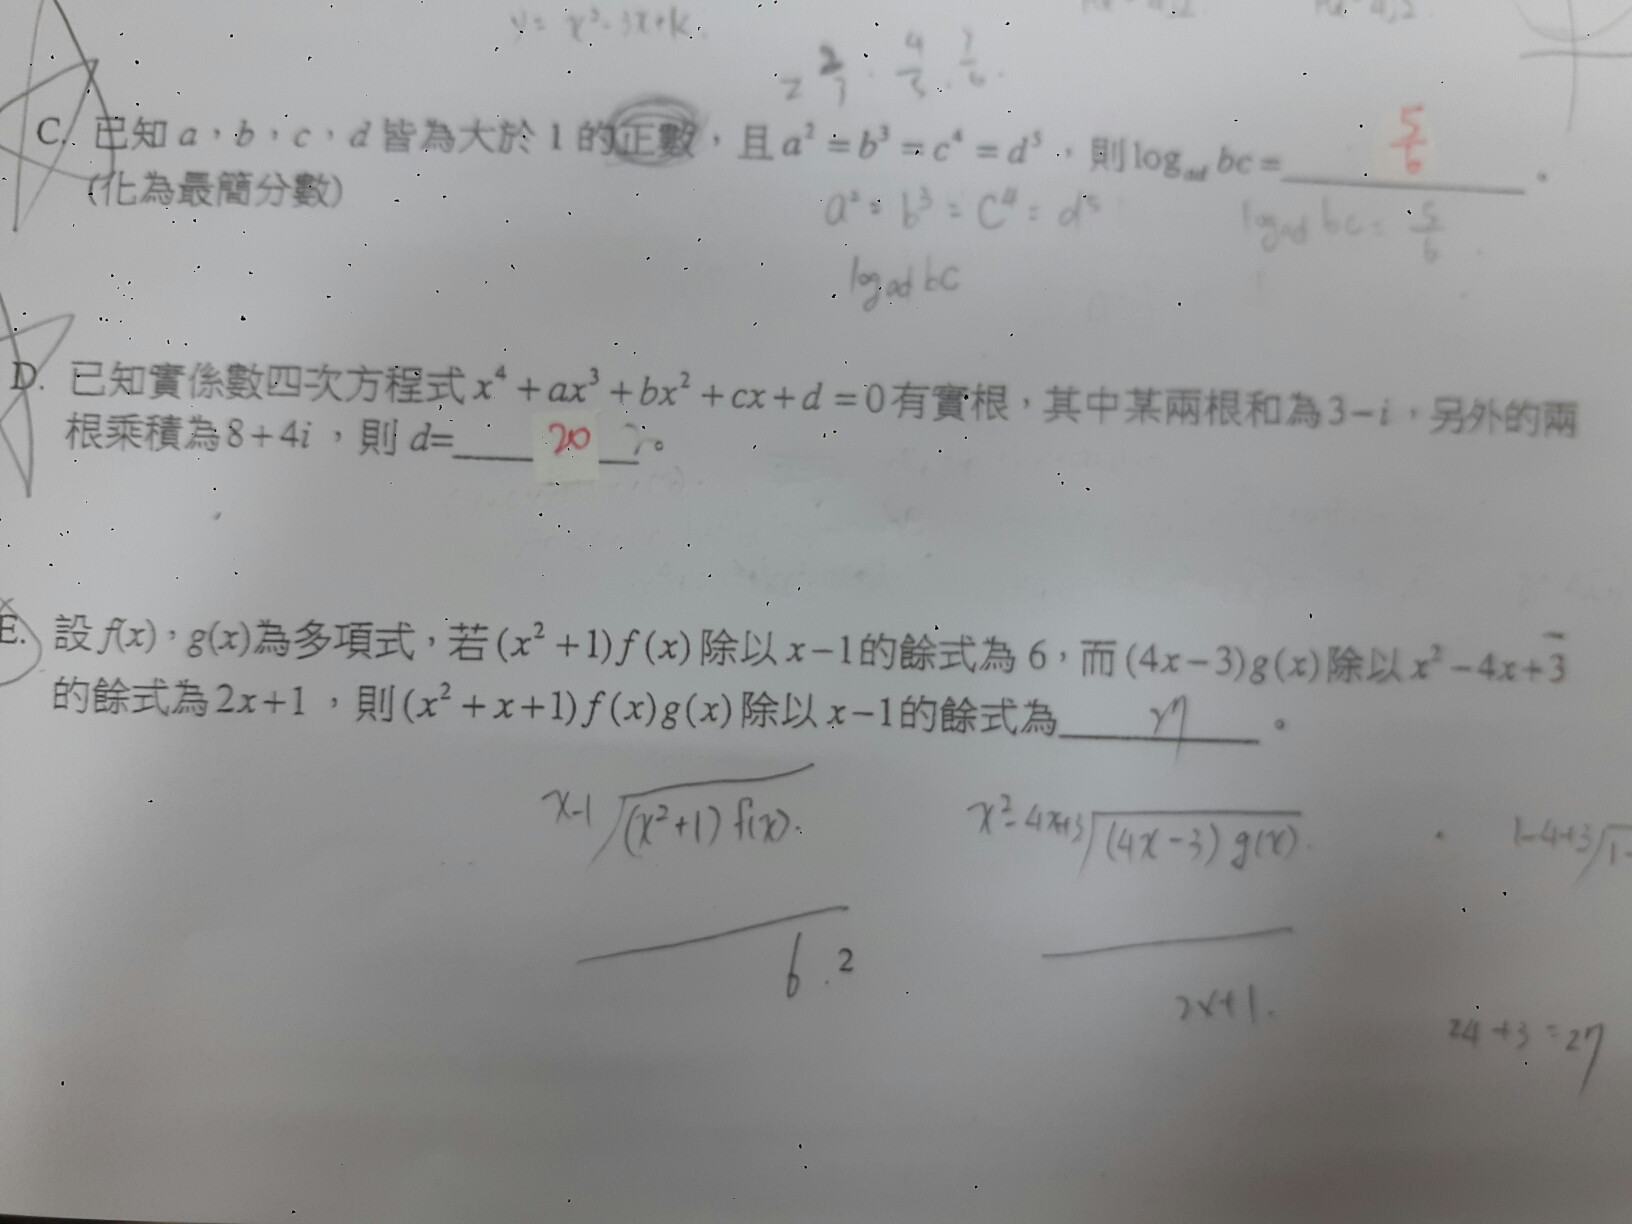 y = x³-3x+k.
C. 已知 a，b，c，d 皆為大於 1 的正數，且 a² = b³ = c⁴ = d⁵，則 log_ad bc = 5/6 。
(化為最簡分數)
a² = b³ = c⁴ = d⁵
log_ad bc = 5/6
log_ad bc
D. 已知實係數四次方程式 x⁴ + ax³ + bx² + cx + d = 0 有實根，其中某兩根和為 3-i，另外的兩
根乘積為 8+4i，則 d= 20 。
E. 設 f(x)，g(x)為多項式，若 (x²+1)f(x) 除以 x-1 的餘式為 6，而 (4x-3)g(x) 除以 x²-4x+3
的餘式為 2x+1，則 (x²+x+1)f(x)g(x) 除以 x-1 的餘式為 27 。
x-1 (x²+1) f(x).
x²-4x+3 (4x-3) g(x).
1-4+3
6 . 2
2x+1.
24+3=27